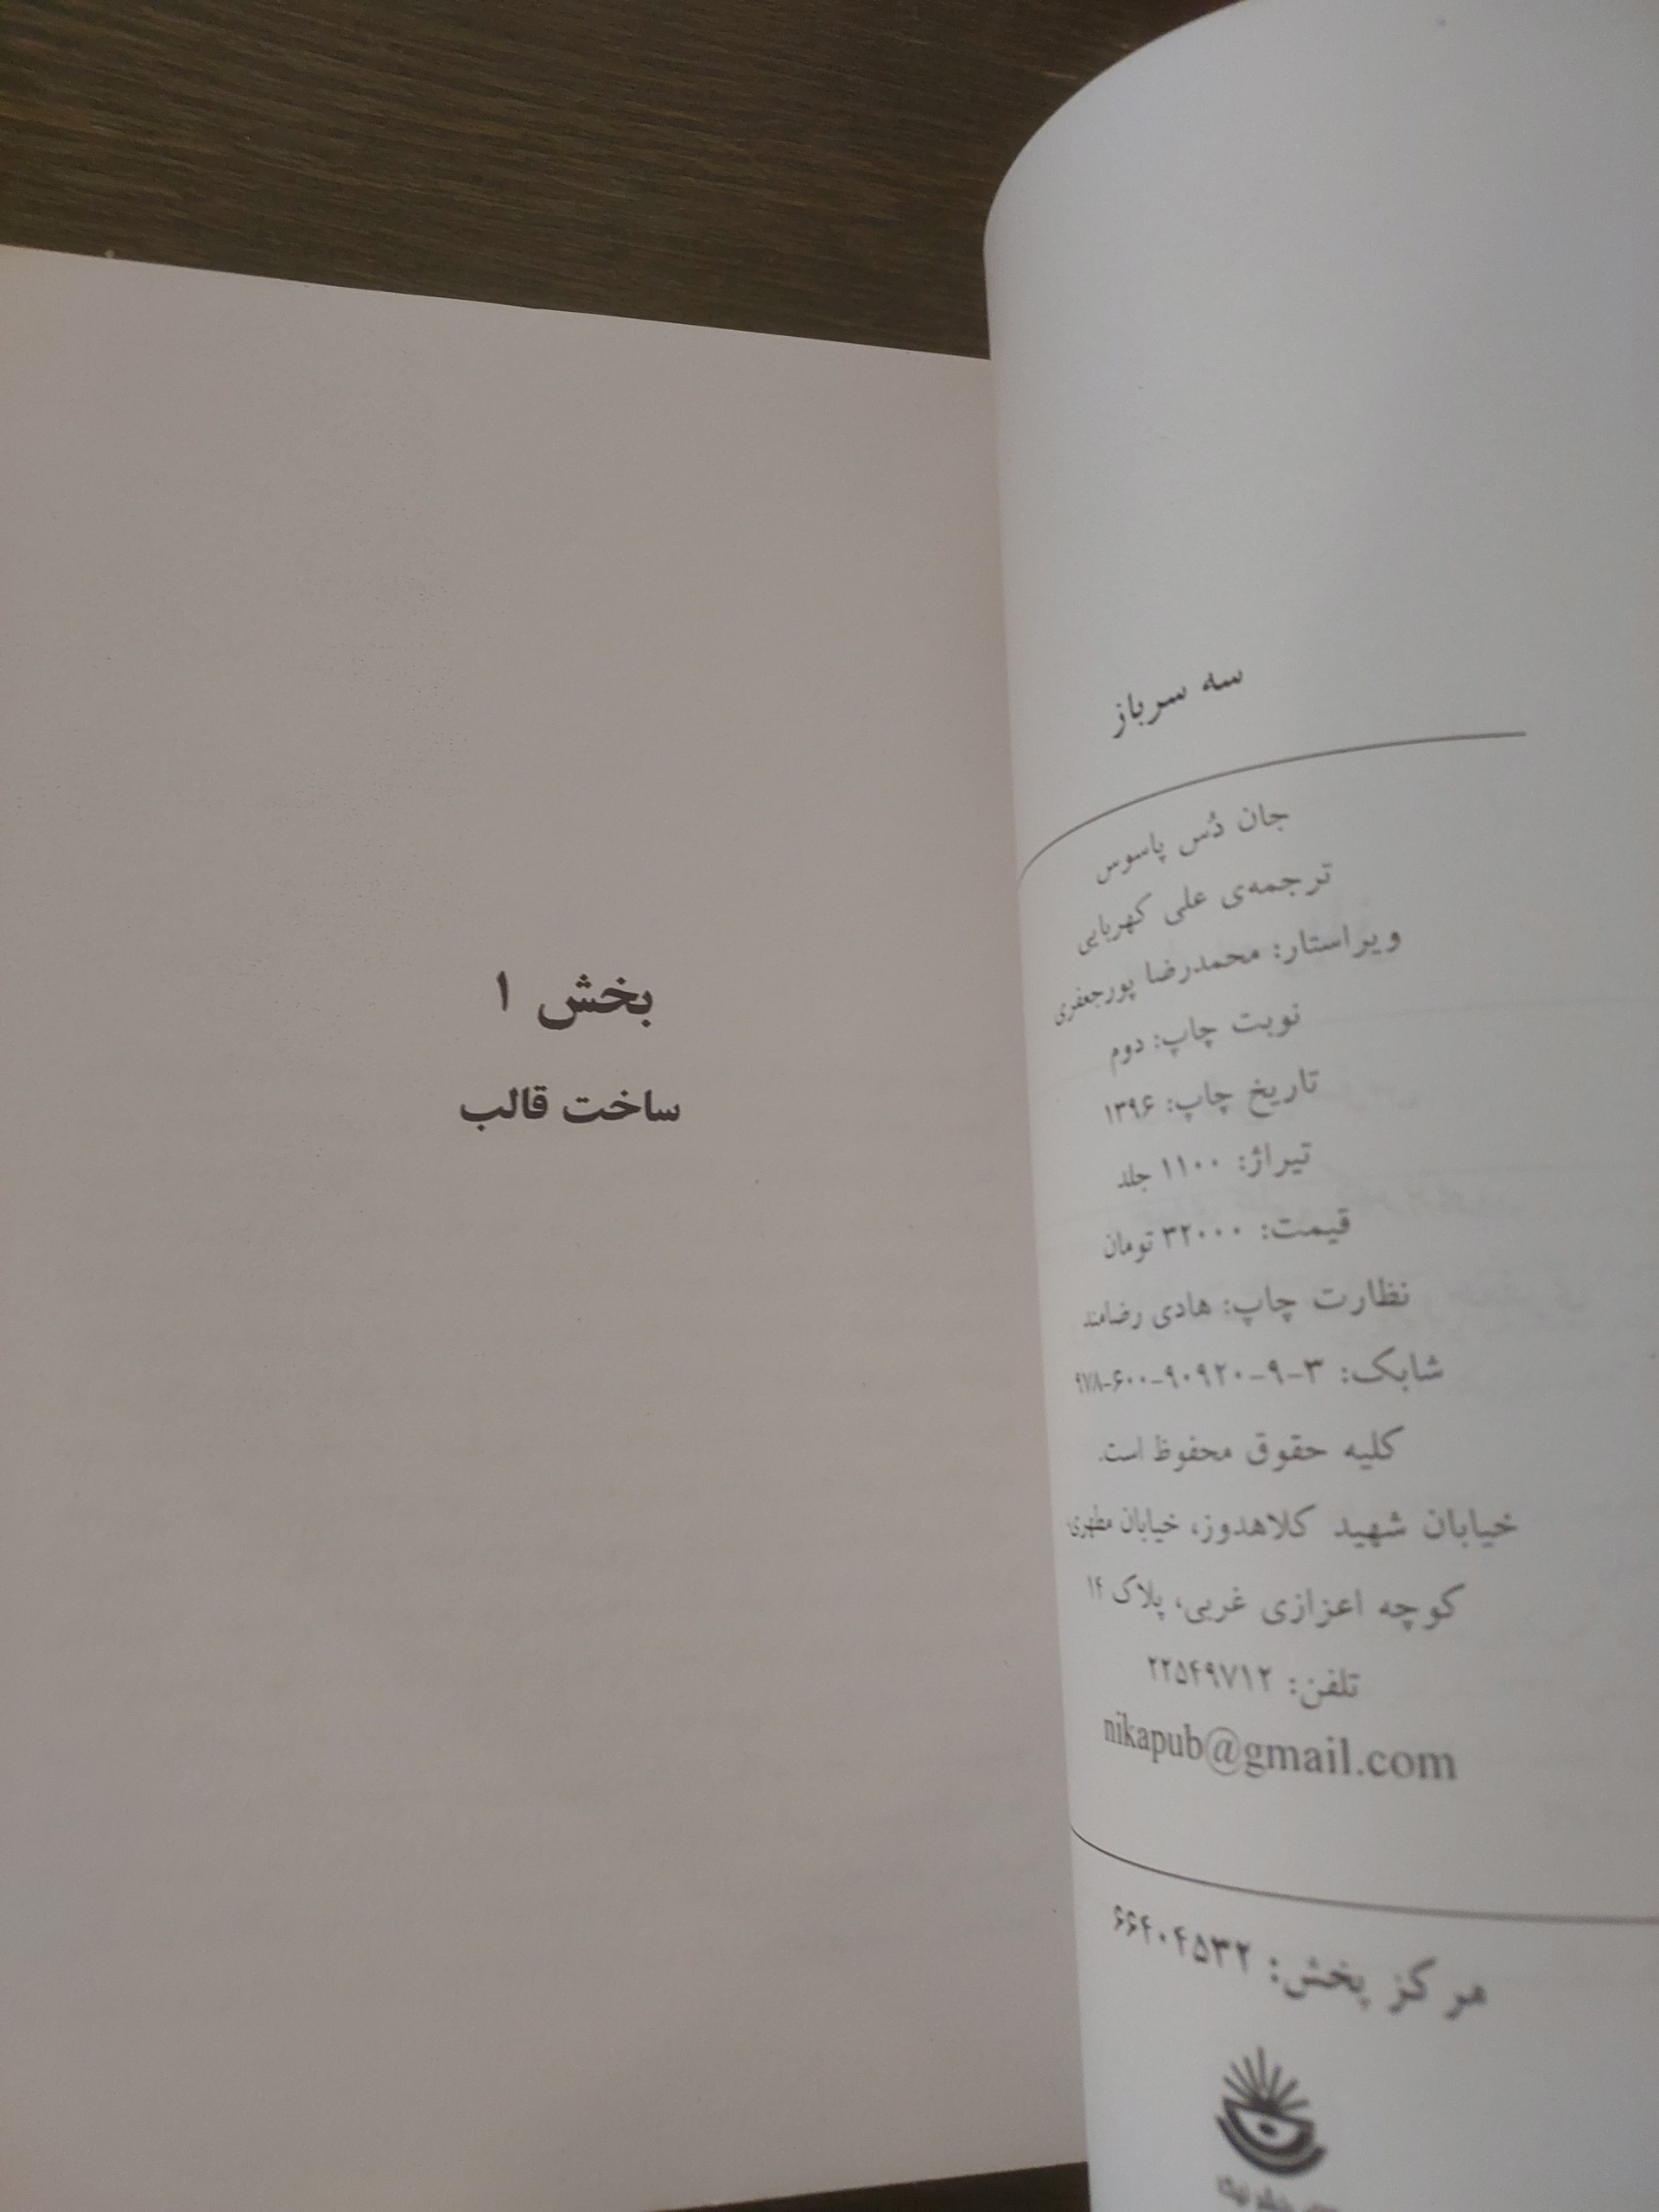 سه سرباز
جان دُس پاسوس
ترجمه‌ی علی کهربایی
ویراستار: محمدرضا پورجعفری
نوبت چاپ: دوم
تاریخ چاپ: ۱۳۹۶
تیراژ: ۱۱۰۰ جلد
قیمت: ۳۲۰۰۰ تومان
نظارت چاپ: هادی رضامند
شابک: ۳-۹-۹۰۹۲۰-۶۰۰-۹۷۸
کلیه حقوق محفوظ است.
خیابان شهید کلاهدوز، خیابان مطهری،
کوچه اعزازی غربی، پلاک ۱۴
تلفن: ۲۲۵۴۹۷۱۲
nikapub@gmail.com
مرکز پخش: ۶۶۴۰۴۵۳۲
بخش ۱
ساخت قالب